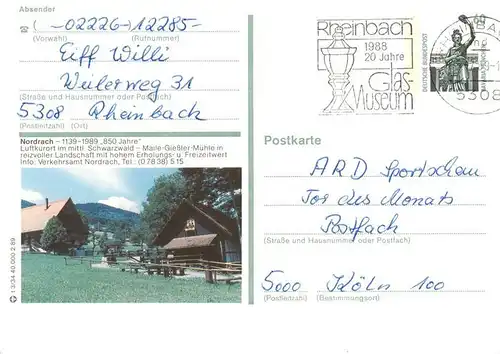 Absender
☎ (-02226-12285-
(Vorwahl) (Rufnummer)
Eiff Willi
Weilerweg 31
(Straße und Hausnummer oder Postfach)
5308 Rheinbach
(Postleitzahl) (Ort)
Nordrach – 1139-1989 „850 Jahre"
Luftkurort im mittl. Schwarzwald – Maile-Gießler-Mühle in
reizvoller Landschaft mit hohem Erholungs- u. Freizeitwert
Info: Verkehrsamt Nordrach, Tel.: (0 78 38) 5 15
1 3/34 40 000 2.89
Rheinbach
1988
20 Jahre
Glas-
Museum
60
DEUTSCHE BUNDESPOST
5308
Postkarte
ARD Sportschau
Tor des Monats
Postfach
(Straße und Hausnummer oder Postfach)
5000 Köln 100
(Postleitzahl) (Bestimmungsort)